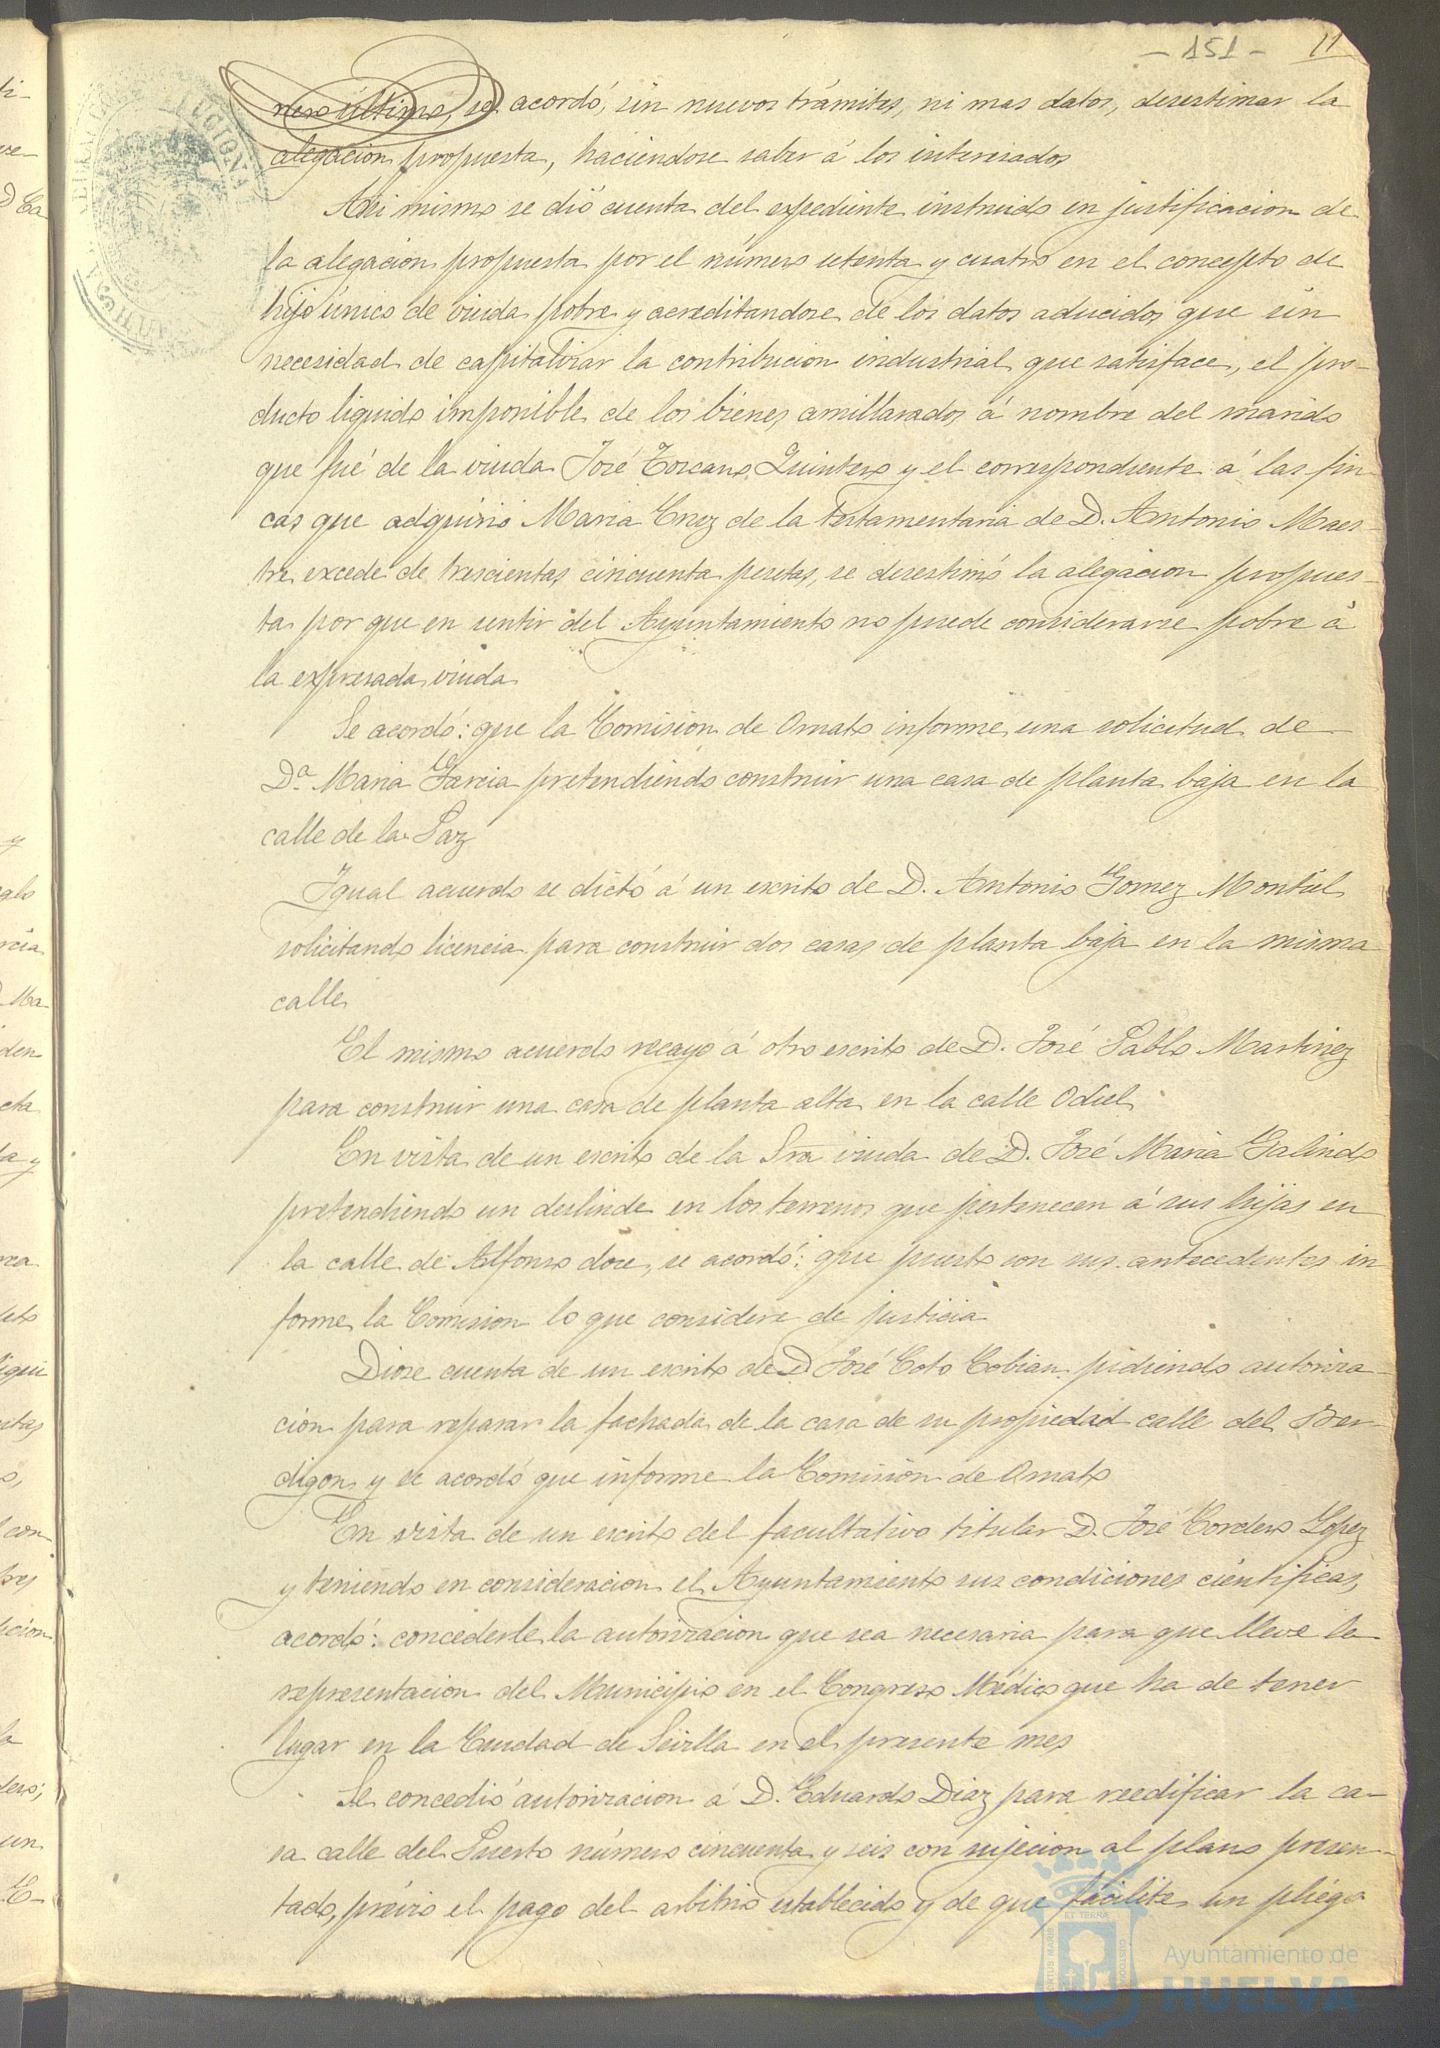 - 151 -
11
nero último, se acordó, sin nuevos trámites, ni mas datos, desestimar la
alegacion propuesta, haciendose saber á los interesados
Asi mismo se dió cuenta del expediente instruido en justificacion de
la alegacion propuesta por el número setenta y cuatro en el concepto de
hijo único de viuda pobre y acreditandose de los datos aducidos que sin
necesidad de capitalizar la contribucion industrial que satisface, el pro-
ducto liquido imponible de los bienes amillarados á nombre del marido
que fué de la viuda José Toscano Quintero y el correspondiente á las fin-
cas que adquirió Maria Cruz de la testamentaria de D. Antonio Maes-
tre excede de trescientas cincuenta pesetas, se desestimó la alegacion propues-
ta por que en sentir del Ayuntamiento no puede considerarse pobre á
la expresada viuda
Se acordó: que la Comision de Ornato informe una solicitud de
Dª Maria Garcia pretendiendo construir una casa de planta baja en la
calle de la Paz
Igual acuerdo se dictó á un escrito de D. Antonio Gomez Montiel
solicitando licencia para construir dos casas de planta baja en la misma
calle
El mismo acuerdo recayó á otro escrito de D. José Pablo Martinez
para construir una casa de planta alta en la calle Odiel
En vista de un escrito de la Sra viuda de D. José Maria Galindo
pretendiendo un deslinde en los terrenos que pertenecen á sus hijas en
la calle de Alfonso doce, se acordó: que puesto con sus antecedentes in-
forme la Comision lo que considere de justicia
Diose cuenta de un escrito de D José Coto Cobian pidiendo autoriza-
cion para reparar la fachada de la casa de su propiedad calle del Ber-
digon y se acordó que informe la Comision de Ornato
En vista de un escrito del facultativo titular D. José Cordero Lopez
y teniendo en consideracion el Ayuntamiento sus condiciones cientificas,
acordó: concederle la autorizacion que sea necesaria para que lleve la
representacion del Municipio en el Congreso Médico que ha de tener
lugar en la Ciudad de Sevilla en el presente mes
Se concedió autorizacion á D. Eduardo Diaz para reedificar la ca-
sa calle del Puerto número cincuenta y seis con sujecion al plano presen-
tado, prévio el pago del arbitrio establecido y de que facilite un pliego
Ayuntamiento de
HUELVA